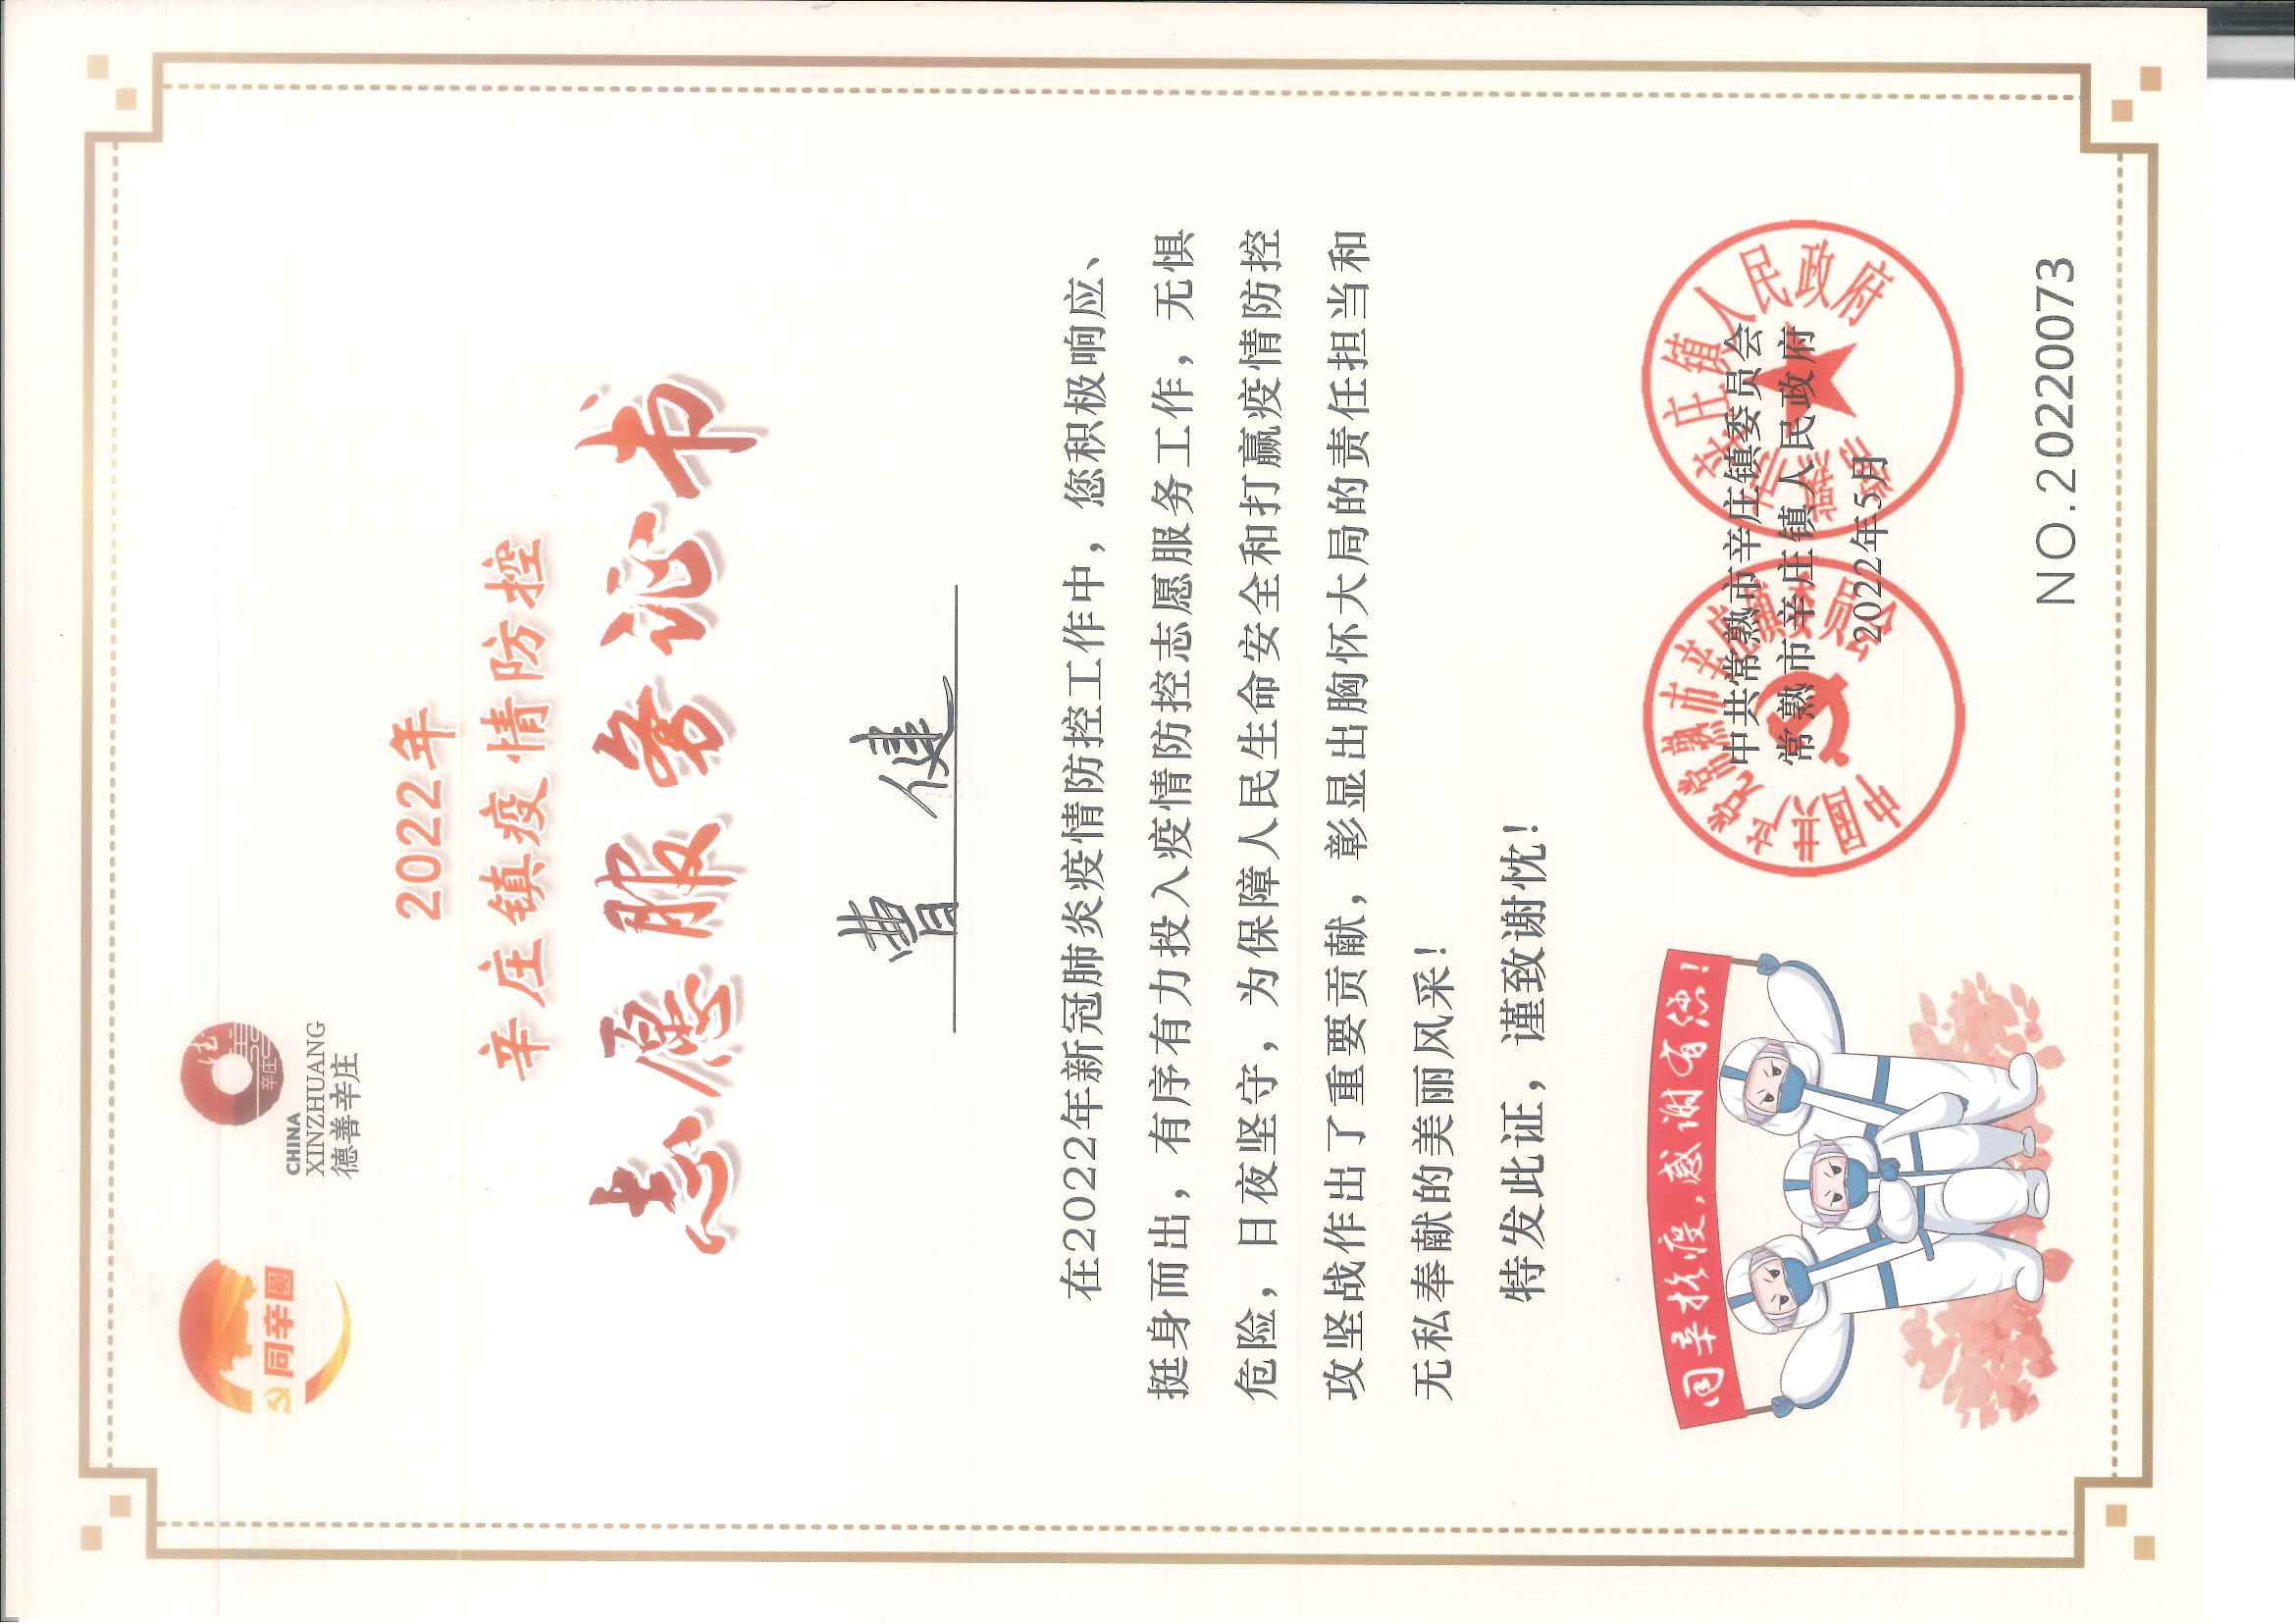 同辛圆
辛庄
CHINA
XINZHUANG
德善辛庄
2022年
辛庄镇疫情防控
志愿服务证书
曹健
在2022年新冠肺炎疫情防控工作中，您积极响应、
挺身而出，有序有力投入疫情防控志愿服务工作，无惧
危险，日夜坚守，为保障人民生命安全和打赢疫情防控
攻坚战作出了重要贡献，彰显出胸怀大局的责任担当和
无私奉献的美丽风采！
特发此证，谨致谢忱！
同辛抗疫，感谢有您！
中国共产党常熟市辛庄镇委员会
常熟市辛庄镇人民政府
中共常熟市辛庄镇委员会
常熟市辛庄镇人民政府
2022年5月
NO.20220073